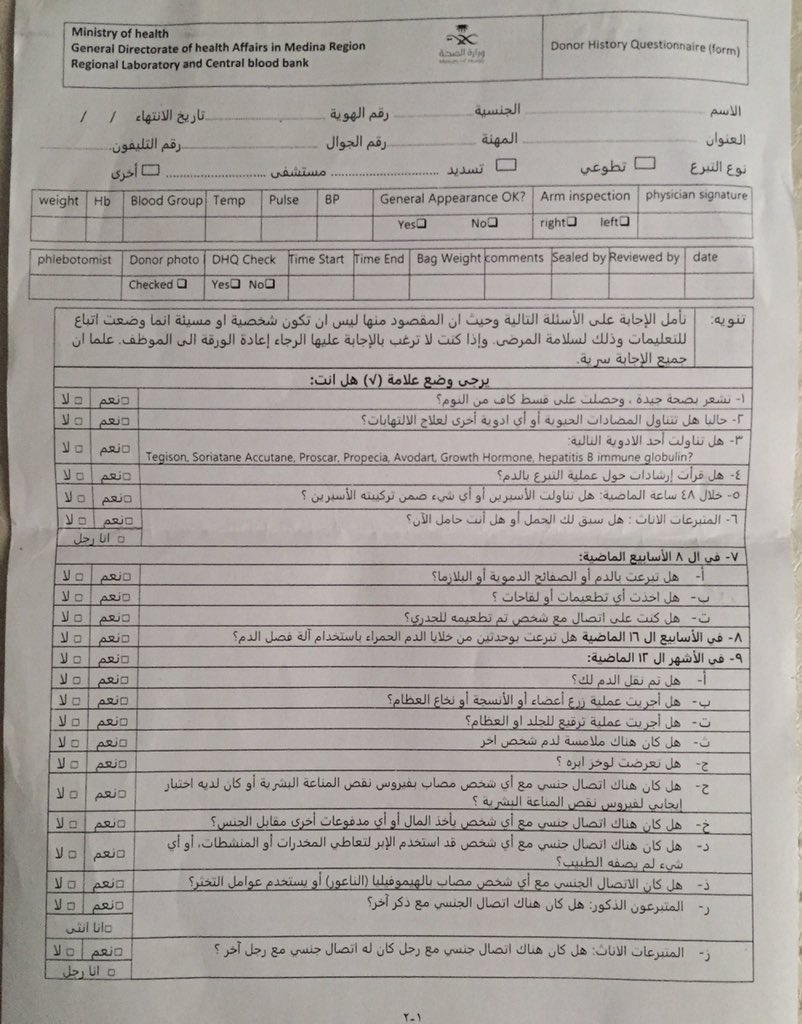 Ministry of health
General Directorate of health Affairs in Medina Region
Regional Laboratory and Central blood bank
وزارة الصحة
Donor History Questionnaire (form)
الاسم الجنسية رقم الهوية تاريخ الانتهاء / /
العنوان المهنة رقم الجوال رقم التليفون
نوع التبرع □ تطوعي □ تسديد مستشفى □ أخرى
weight Hb Blood Group Temp Pulse BP General Appearance OK? Arm inspection physician signature
Yes□ No□ right□ left□
phlebotomist Donor photo DHQ Check Time Start Time End Bag Weight comments Sealed by Reviewed by date
Checked □ Yes□ No□
تنويه: تأمل الإجابة على الأسئلة التالية وحيث ان المقصود منها ليس ان تكون شخصية او مسيئة انما وضعت اتباع
للتعليمات وذلك لسلامة المرضى. وإذا كنت لا ترغب بالإجابة عليها الرجاء إعادة الورقة الى الموظف. علما ان
جميع الإجابة سرية.
يرجى وضع علامة (√) هل انت:
١- تشعر بصحة جيدة ، وحصلت على قسط كاف من النوم؟ □نعم □ لا
٢- حاليا هل تتناول المضادات الحيوية أو أي ادوية أخرى لعلاج الالتهابات؟ □نعم □ لا
٣- هل تناولت أحد الادوية التالية: □نعم □ لا
Tegison, Soriatane Accutane, Proscar, Propecia, Avodart, Growth Hormone, hepatitis B immune globulin?
٤- هل قرأت إرشادات حول عملية التبرع بالدم؟ □نعم □ لا
٥- خلال ٤٨ ساعة الماضية: هل تناولت الأسبرين أو أي شيء ضمن تركيبته الأسبرين ؟ □نعم □ لا
٦- المتبرعات الاناث : هل سبق لك الحمل أو هل أنت حامل الآن؟ □نعم □ لا
□ انا رجل
٧- في ال ٨ الأسابيع الماضية:
أ- هل تبرعت بالدم أو الصفائح الدموية أو البلازما؟ □نعم □ لا
ب- هل اخذت أي تطعيمات أو لقاحات ؟ □نعم □ لا
ت- هل كنت على اتصال مع شخص تم تطعيمه للجدري؟ □نعم □ لا
٨- في الأسابيع ال ١٦ الماضية هل تبرعت بوحدتين من خلايا الدم الحمراء باستخدام آلة فصل الدم؟ □نعم □ لا
٩- في الأشهر ال ١٢ الماضية: □نعم □ لا
أ- هل تم نقل الدم لك؟ □نعم □ لا
ب- هل أجريت عملية زرع أعضاء أو الأنسجة أو نخاع العظام؟ □نعم □ لا
ت- هل أجريت عملية ترقيع للجلد او العظام؟ □نعم □ لا
ث- هل كان هناك ملامسة لدم شخص اخر □نعم □ لا
ج- هل تعرضت لوخز ابره ؟ □نعم □ لا
ح- هل كان هناك اتصال جنسي مع أي شخص مصاب بفيروس نقص المناعة البشرية أو كان لديه اختبار □نعم □ لا
إيجابي لفيروس نقص المناعة البشرية ؟
خ- هل كان هناك اتصال جنسي مع أي شخص يأخذ المال أو أي مدفوعات أخرى مقابل الجنس؟ □نعم □ لا
د- هل كان هناك اتصال جنسي مع أي شخص قد استخدم الإبر لتعاطي المخدرات أو المنشطات، أو أي □نعم □ لا
شيء لم يصفه الطبيب؟
ذ- هل كان الاتصال الجنسي مع أي شخص مصاب بالهيموفيليا (الناعور) أو يستخدم عوامل التخثر؟ □نعم □ لا
ر- المتبرعون الذكور: هل كان هناك اتصال الجنسي مع ذكر آخر؟ □نعم □ لا
□انا انثى
ز- المتبرعات الاناث: هل كان هناك اتصال جنسي مع رجل كان له اتصال جنسي مع رجل آخر ؟ □نعم □ لا
□ انا رجل
٢-١